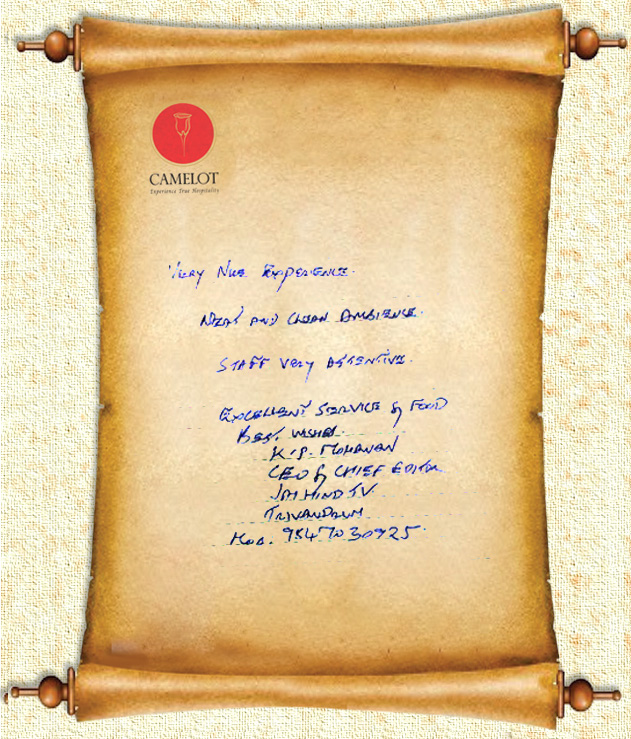 CAMELOT
Experience True Hospitality
VERY NICE EXPERIENCE.
NEAT AND CLEAN AMBIENCE.
STAFF VERY ATTENTIVE.
EXCELLENT SERVICE & FOOD
BEST WISHES.
K.P. MOHANAN
CEO & CHIEF EDITOR
JAI HIND TV
TRIVANDRUM
MOB. 9847030925